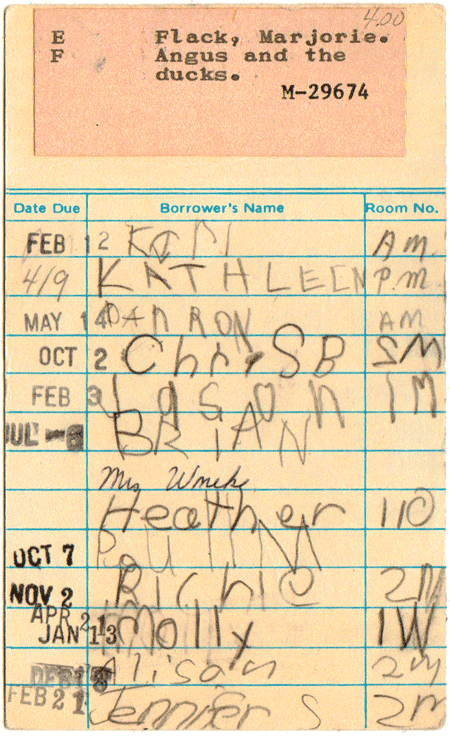 4.00
E Flack, Marjorie.
F Angus and the
ducks.
M-29674
Date Due Borrower's Name Room No.
FEB 12 KIM Am.
4/9 KATHLEEN P.m.
MAY 14 DARRON AM
OCT 2 Chris B 2M
FEB 3 Jason 1M
JUL -6 BRIAN
Mrs
Heather 110
OCT 7
NOV 2 Richie 2M
APR 21
JAN 13 Molly 1W
FEB 18 Alison 2M
FEB 21 Jennifer S 2M